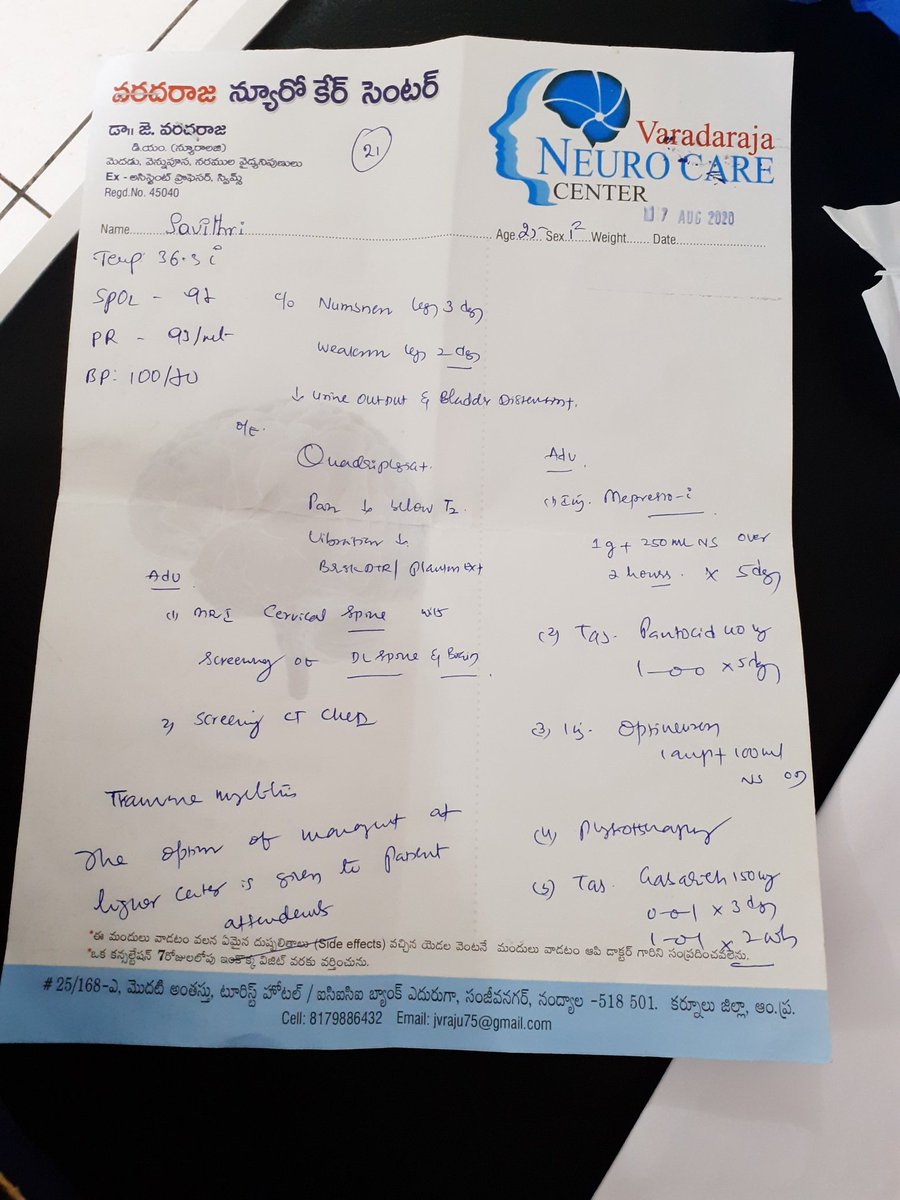 వరదరాజ న్యూరో కేర్ సెంటర్
డా॥ జె. వరదరాజ
డి.యం. (న్యూరాలజి)
మెదడు, వెన్నుపూస, నరముల వైద్యనిపుణులు
Ex - అసిస్టెంట్ ప్రొఫెసర్, స్విమ్స్
Regd.No. 45040
21
Varadaraja
NEURO CARE
CENTER
7 AUG 2020
Name Savithri Age 25 Sex F Weight Date
Temp 36.3
SPO2 - 97
PR - 93/mt
BP: 100/70
c/o Numbness legs 3 days
Weakness legs 2 days
↓ urine output & Bladder Distension.
o/e.
Quadriplegia
Pain ↓ below T2
Vibration ↓
Brisk DTR/ Plantar Ext
Adv
(1) MRI Cervical Spine with
Screening of DL Spine & Brain
2) Screening CT Chest
Transverse myelitis
The option of management at
higher center is given to patient
attendents
Adv
(1) Inj.
1g + 250 ml NS over
2 hours. x 5days
(2) Tab. Pantocid 40 mg
1-0-0 x 5days
(3) Inj. Optineuron
1 amp + 100ml
NS OD
(4) Physiotherapy
(5) Tab. 150 mg
0-0-1 x 3 days
1-0-1 x 2 wks
*ఈ మందులు వాడటం వలన ఏమైన దుష్ఫలితాలు (Side effects) వచ్చిన యెడల వెంటనే మందులు వాడటం ఆపి డాక్టర్ గారిని సంప్రదించవలెను.
*ఒక కన్సల్టేషన్ 7రోజులలోపు ఇంకొక్క విజిట్ వరకు వర్తించును.
# 25/168-ఎ, మొదటి అంతస్తు, టూరిస్ట్ హోటల్ / ఐసిఐసిఐ బ్యాంక్ ఎదురుగా, సంజీవనగర్, నంద్యాల -518 501. కర్నూలు జిల్లా, ఆం.ప్ర.
Cell: 8179886432 Email: jvraju75@gmail.com